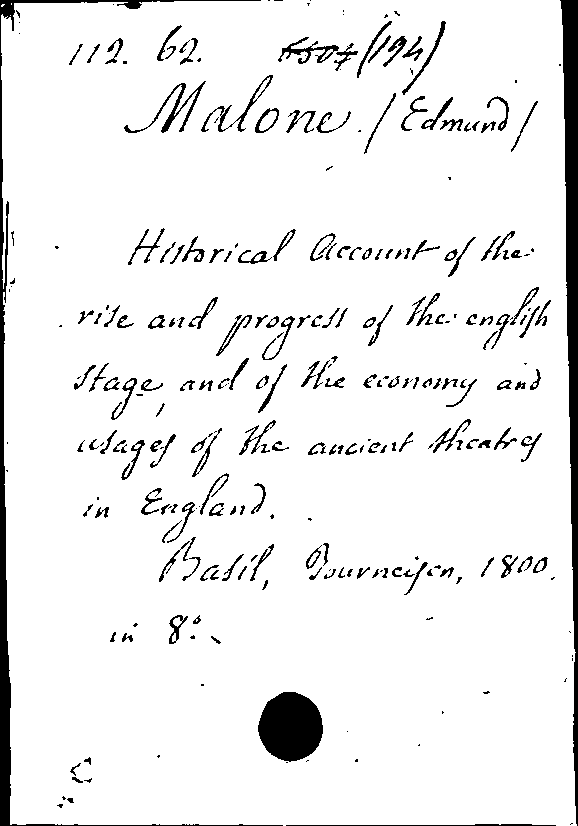 112. 62. 6507 (194)
Malone. / Edmund /
Historical Account of the
rise and progress of the english
stage, and of the economy and
usages of the ancient theatres
in England.
Basil, Tourneisen, 1800.
in 8°.